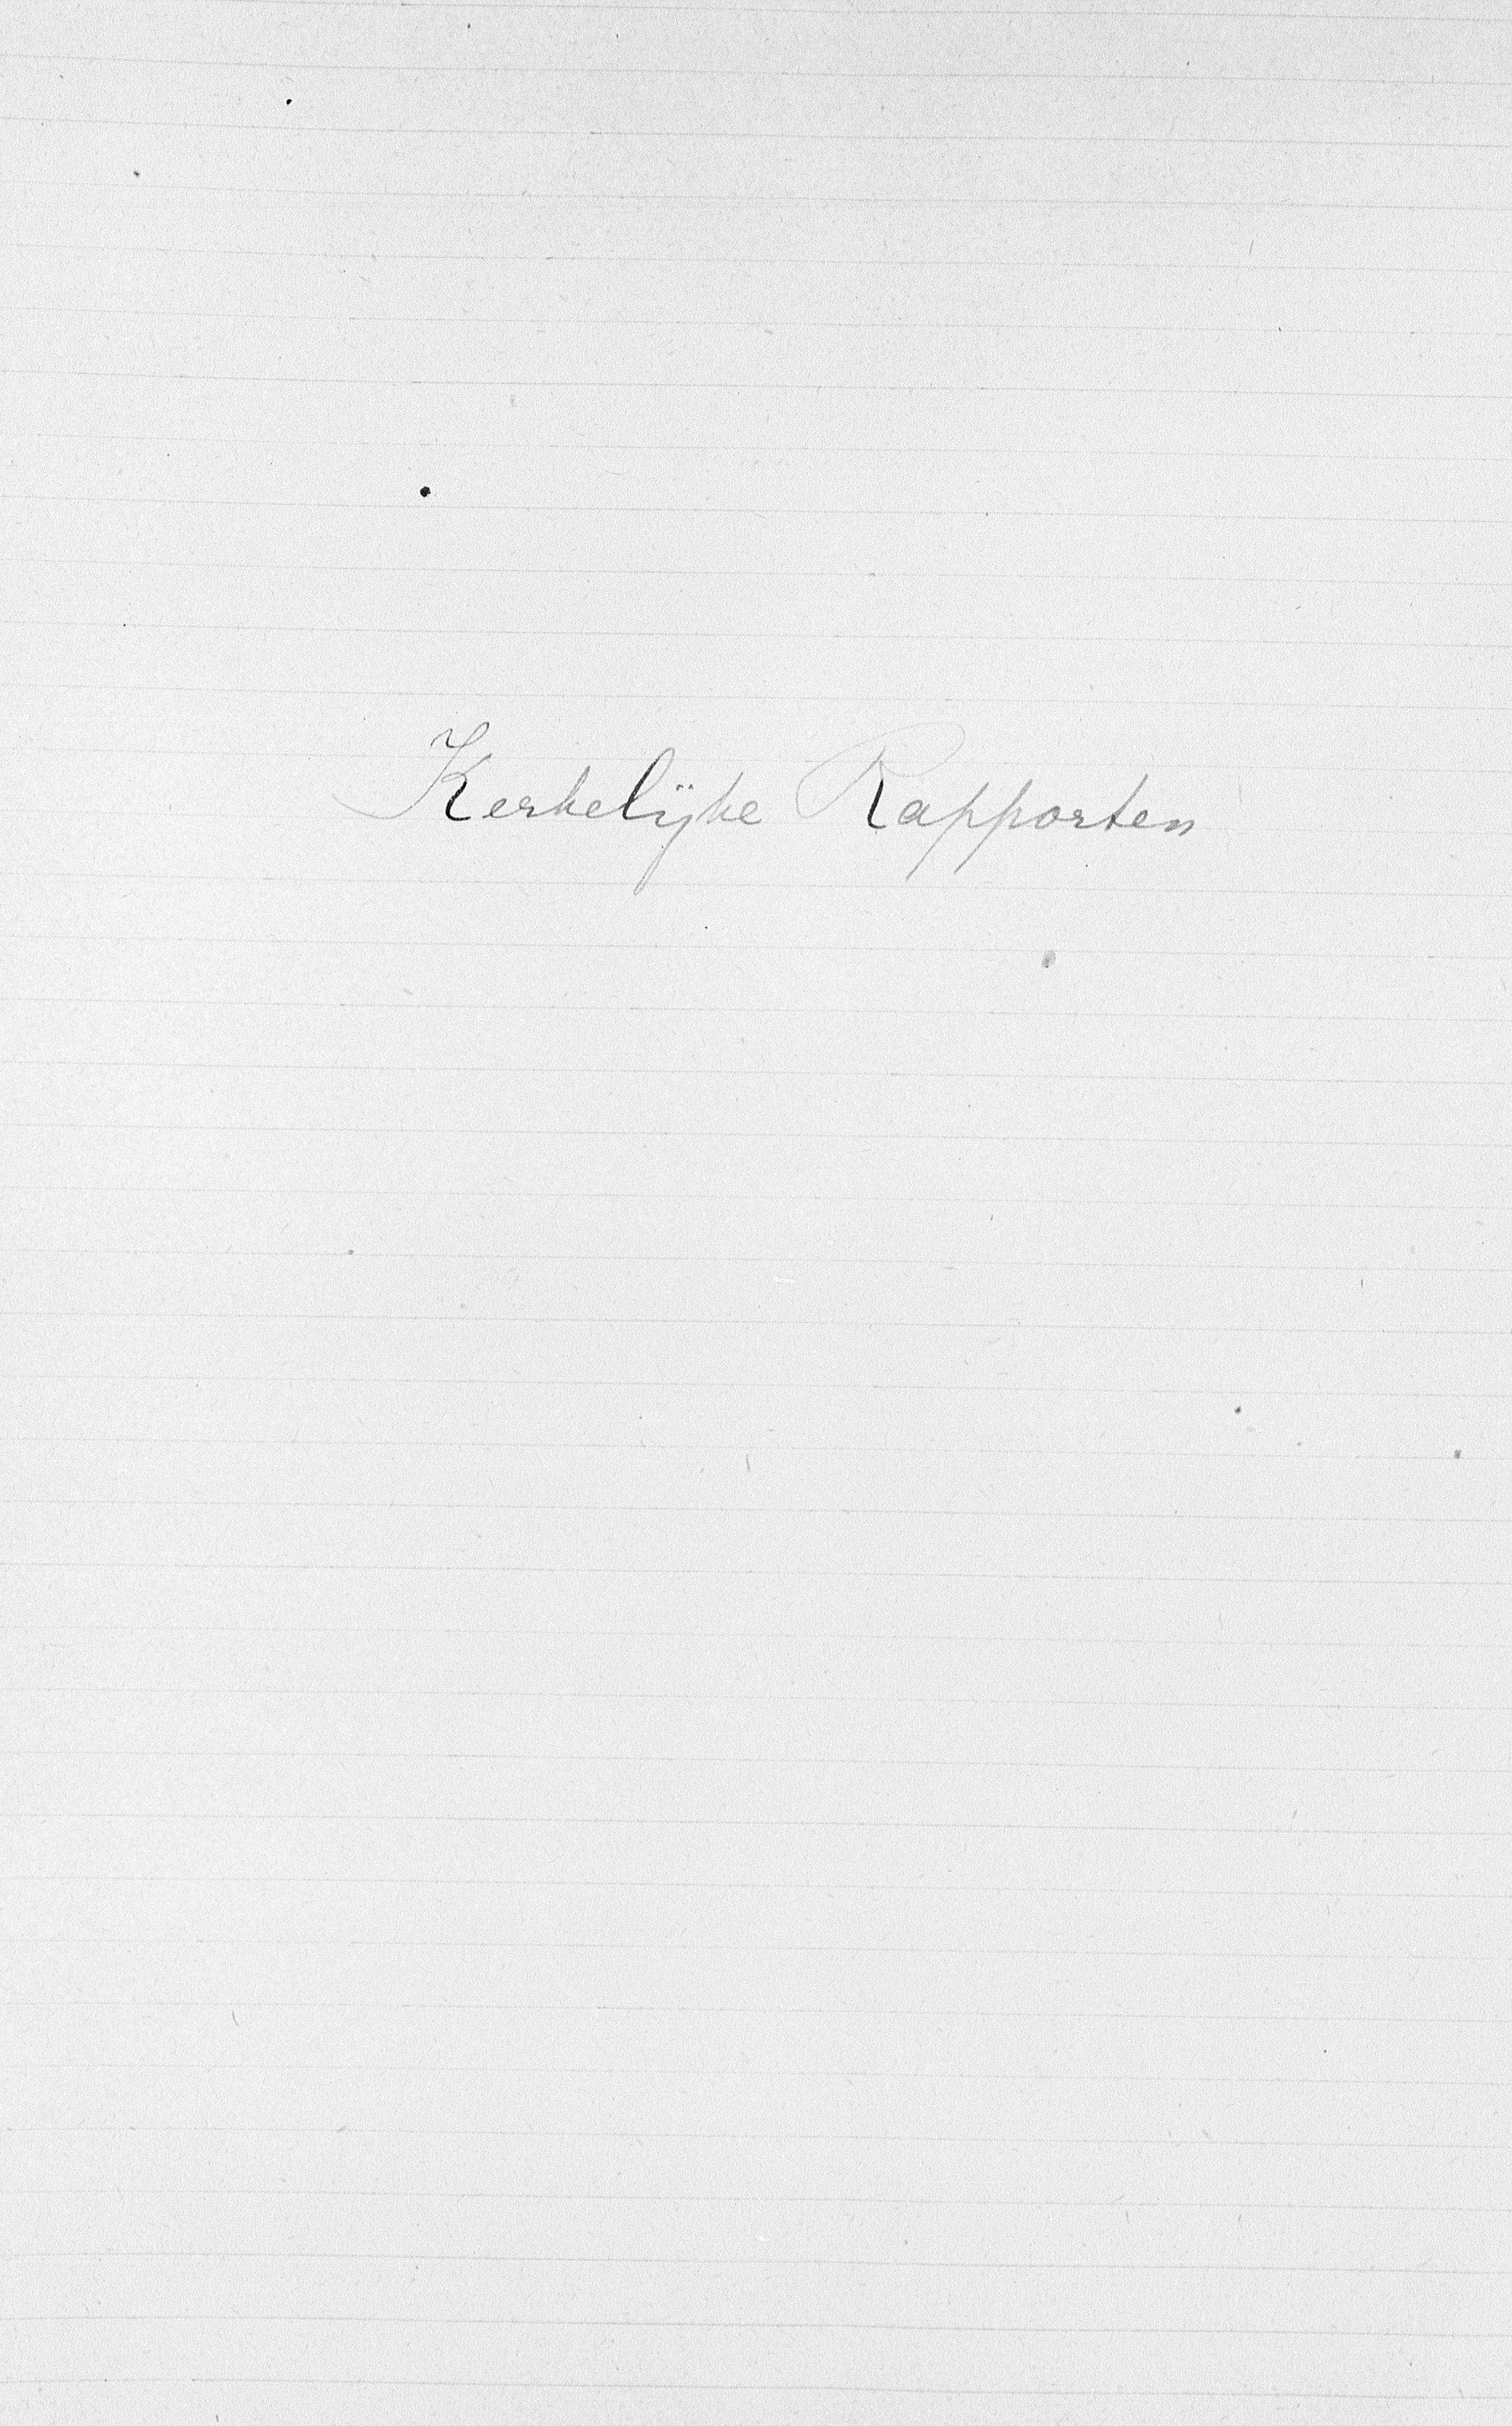 Kerkelijke Rapporten